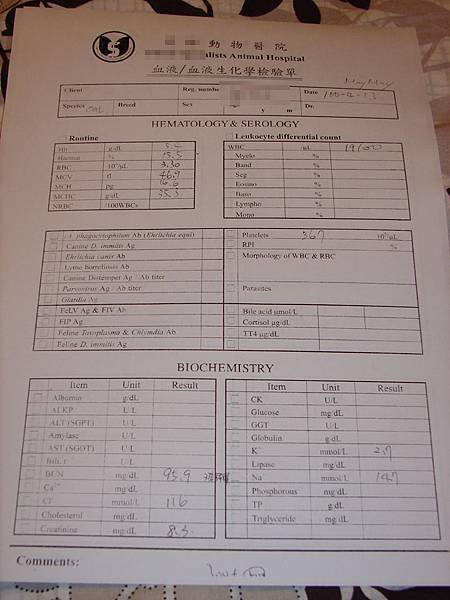 動物醫院
alists Animal Hospital
血液/血液生化學檢驗單
MayMay
Client Reg. numbe Date 100-2-23
Species Cat Breed Sex y m Dr.
HEMATOLOGY & SEROLOGY
Routine
Leukocyte differential count
Hb g/dL
WBC /uL 19100
Haemat % 15.5
Myelo %
RBC 10⁶/uL 3.30
Band %
MCV fl 46.9
Seg %
MCH pg 16.6
Eosino %
MCHC g/dL 35.3
Baso %
NRBC /100WBCs
Lympho %
Mono %
A. phagocytophilum Ab (Ehrlichia equi)
Platelets 367 10³/uL
Canine D. immitis Ag
RPI %
Ehrlichia canis Ab
Morphology of WBC & RBC
Lyme borreliosis Ab
Canine Distemper Ag / Ab titer
Parvovirus Ag / Ab titer
Parasites
Giardia Ag
FeLV Ag & FIV Ab
Bile acid µmol/L
FIP Ag
Cortisol µg/dL
Feline Toxoplasma & Chlymdia Ab
TT4 µg/dL
Feline D. immitis Ag
BIOCHEMISTRY
Item Unit Result
Item Unit Result
Albumin g/dL
CK U/L
ALKP U/L
Glucose mg/dL
ALT (SGPT) U/L
GGT U/L
Amylase U/L
Globulin g/dL
AST (SGOT) U/L
K⁺ mmol/L 2.7
Bili. T mg/dL
Lipase mg/dL
BUN mg/dL 95.9
Na⁺ mmol/L 147
Ca⁺⁺ mg/dL
Phosphorous mg/dL
Cl⁻ mmol/L 116
TP g/dL
Cholesterol mg/dL
Triglyceride mg/dL
Creatinine mg/dL 8.3
Comments: